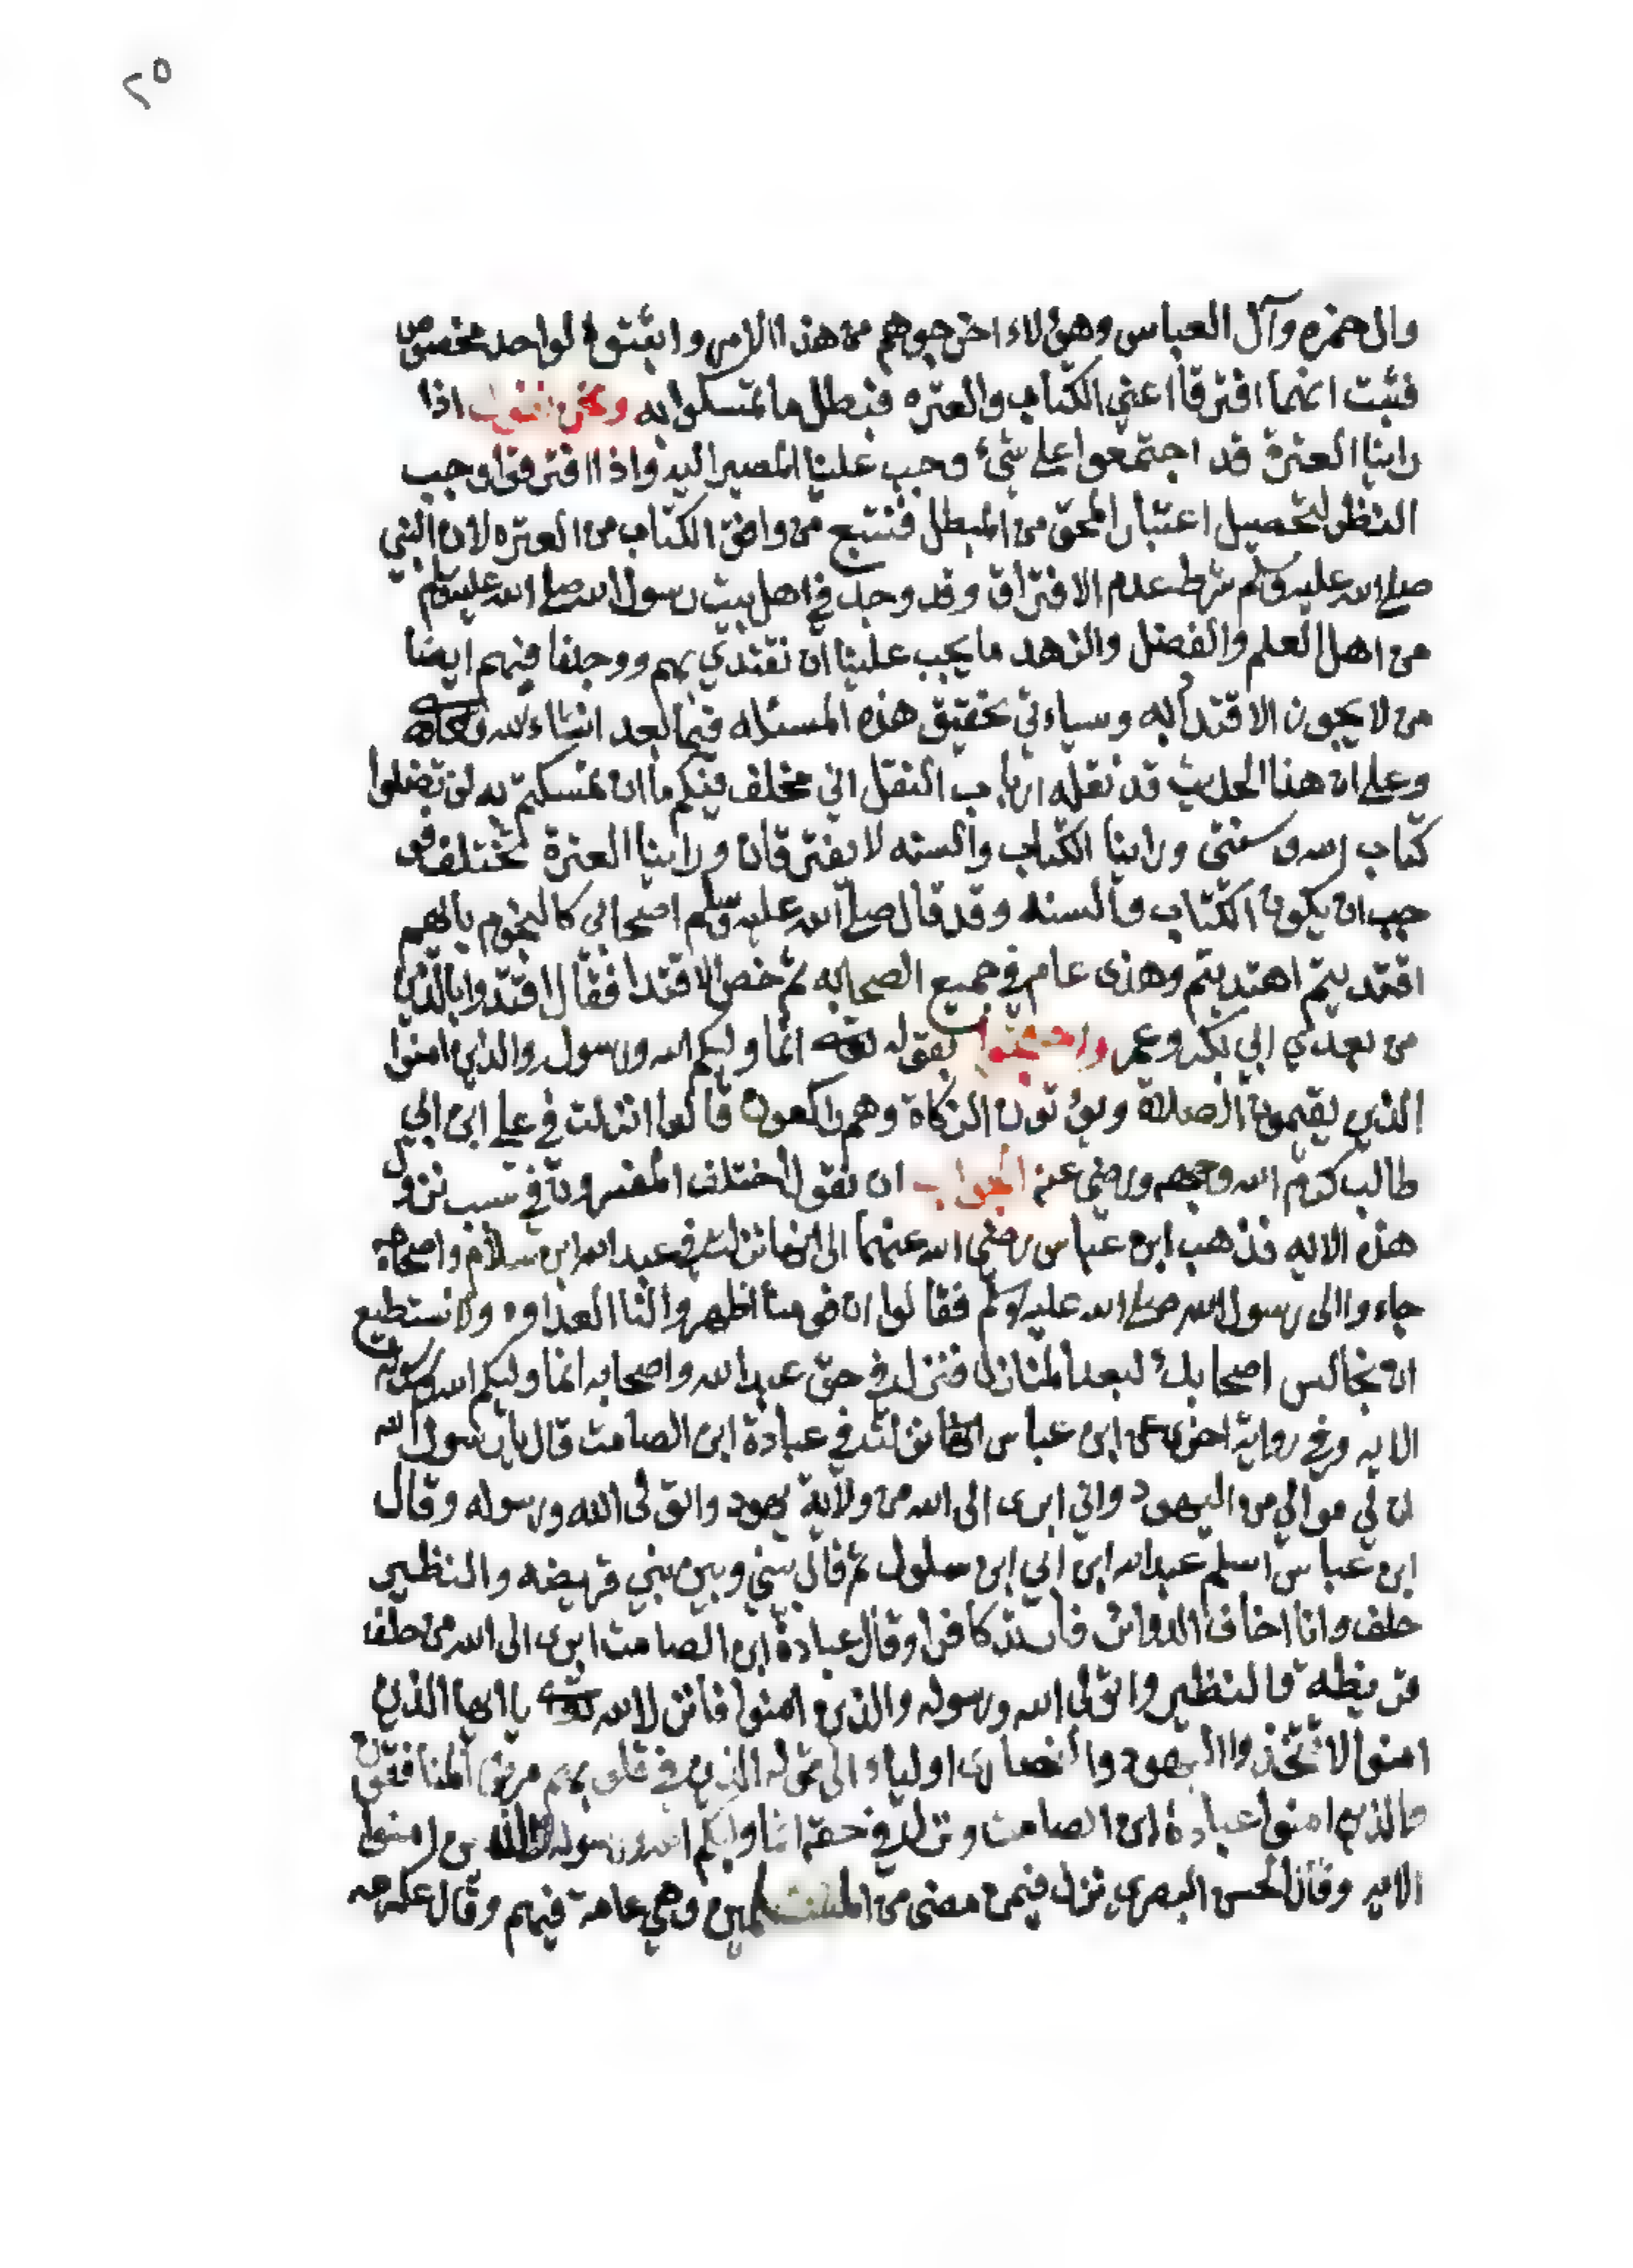 ٢٥
وال حمزه وآل العباس وهؤلاء اخرجوهم من هذا الامر واثبتوا لواحد مخصوص
فثبت انهما افترقا اعني الكتاب والعتره فبطل ما تمسكوا به ونحن نقول اذا
راينا العترة قد اجتمعوا على شيء وجب علينا المصير اليه واذا افترقوا وجب
النظر لتحصيل اعتبار المحق من المبطل فنتبع من وافق الكتاب من العتره لان النبي
صلى الله عليه وسلم شرط عدم الافتراق وقد وجد في اهل بيت رسول الله صلى الله عليه وسلم
من اهل العلم والفضل والزهد ما يجب علينا ان نقتدي بهم ووجدنا فيهم ايضا
من لا يجوز الاقتدا به وسياءتي تحقيق هذه المسئله فيما بعد انشاء الله تعالى
وعلى ان هذا الحديث قد نقله ارباب النقل اني مخلف فيكم ما ان تمسكتم به لن تضلوا
كتاب الله وسنتي وراينا الكتاب والسنه لا يفترقان وراينا العترة تختلف فو
جب ان يكون الكتاب والسنه وقد قال صلى الله عليه وسلم اصحابي كالنجوم بايهم
اقتديتم اهتديتم وهذى عام في جميع الصحابه ثم خص الاقتدا فقال اقتدوا بالذين
من بعدي ابي بكر وعمر واحتجوا بقوله تعالى انما وليكم الله ورسوله والذين امنوا
الذين يقيمون الصلاة ويؤتون الزكاة وهم راكعون قالوا انزلت في علي ابن ابي
طالب كرم الله وجهه ورضي عنه الجواب ان نقول اختلف المفسرون في سبب نزول
هذه الايه فذهب ابن عباس رضي الله عنهما الى انها نزلت في عبد الله ابن سلام واصحابه
جاءوا الى رسول الله صلى الله عليه وسلم فقالوا ان قومنا اظهروا لنا العداوه ولا نستطيع
ان نجالس اصحابك لبعد المنازل فنزلت في حق عبد الله واصحابه انما وليكم الله ورسوله
الايه وفي رواية اخرى عن ابن عباس انها نزلت في عبادة ابن الصامت قال يا رسول الله
ان لي موالي من اليهود واني ابرى الى الله من ولاية يهود واتولى الله ورسوله وقال
ابن عباس اسلم عبد الله ابن ابي ابن سلول ثم قال بيني وبين بني قريضه والنظير
حلف وانا اخاف الدوائر فارتد كافرا وقال عبادة ابن الصامت ابرى الى الله من حلف
قريظه والنظير واتولى الله ورسوله والذين امنوا فانزل الله تعالى يا ايها الذين
امنوا لا تتخذوا اليهود والنصارى اولياء الى قوله الذين في قلوبهم مرض المنافقون
والذين امنوا عبادة ابن الصامت ونزل في حقه انما وليكم الله ورسوله والذين امنوا
الايه وقال الحسن البصري نزلت فيمن مضى من المسلمين وهي عامة فيهم وقال عكرمه